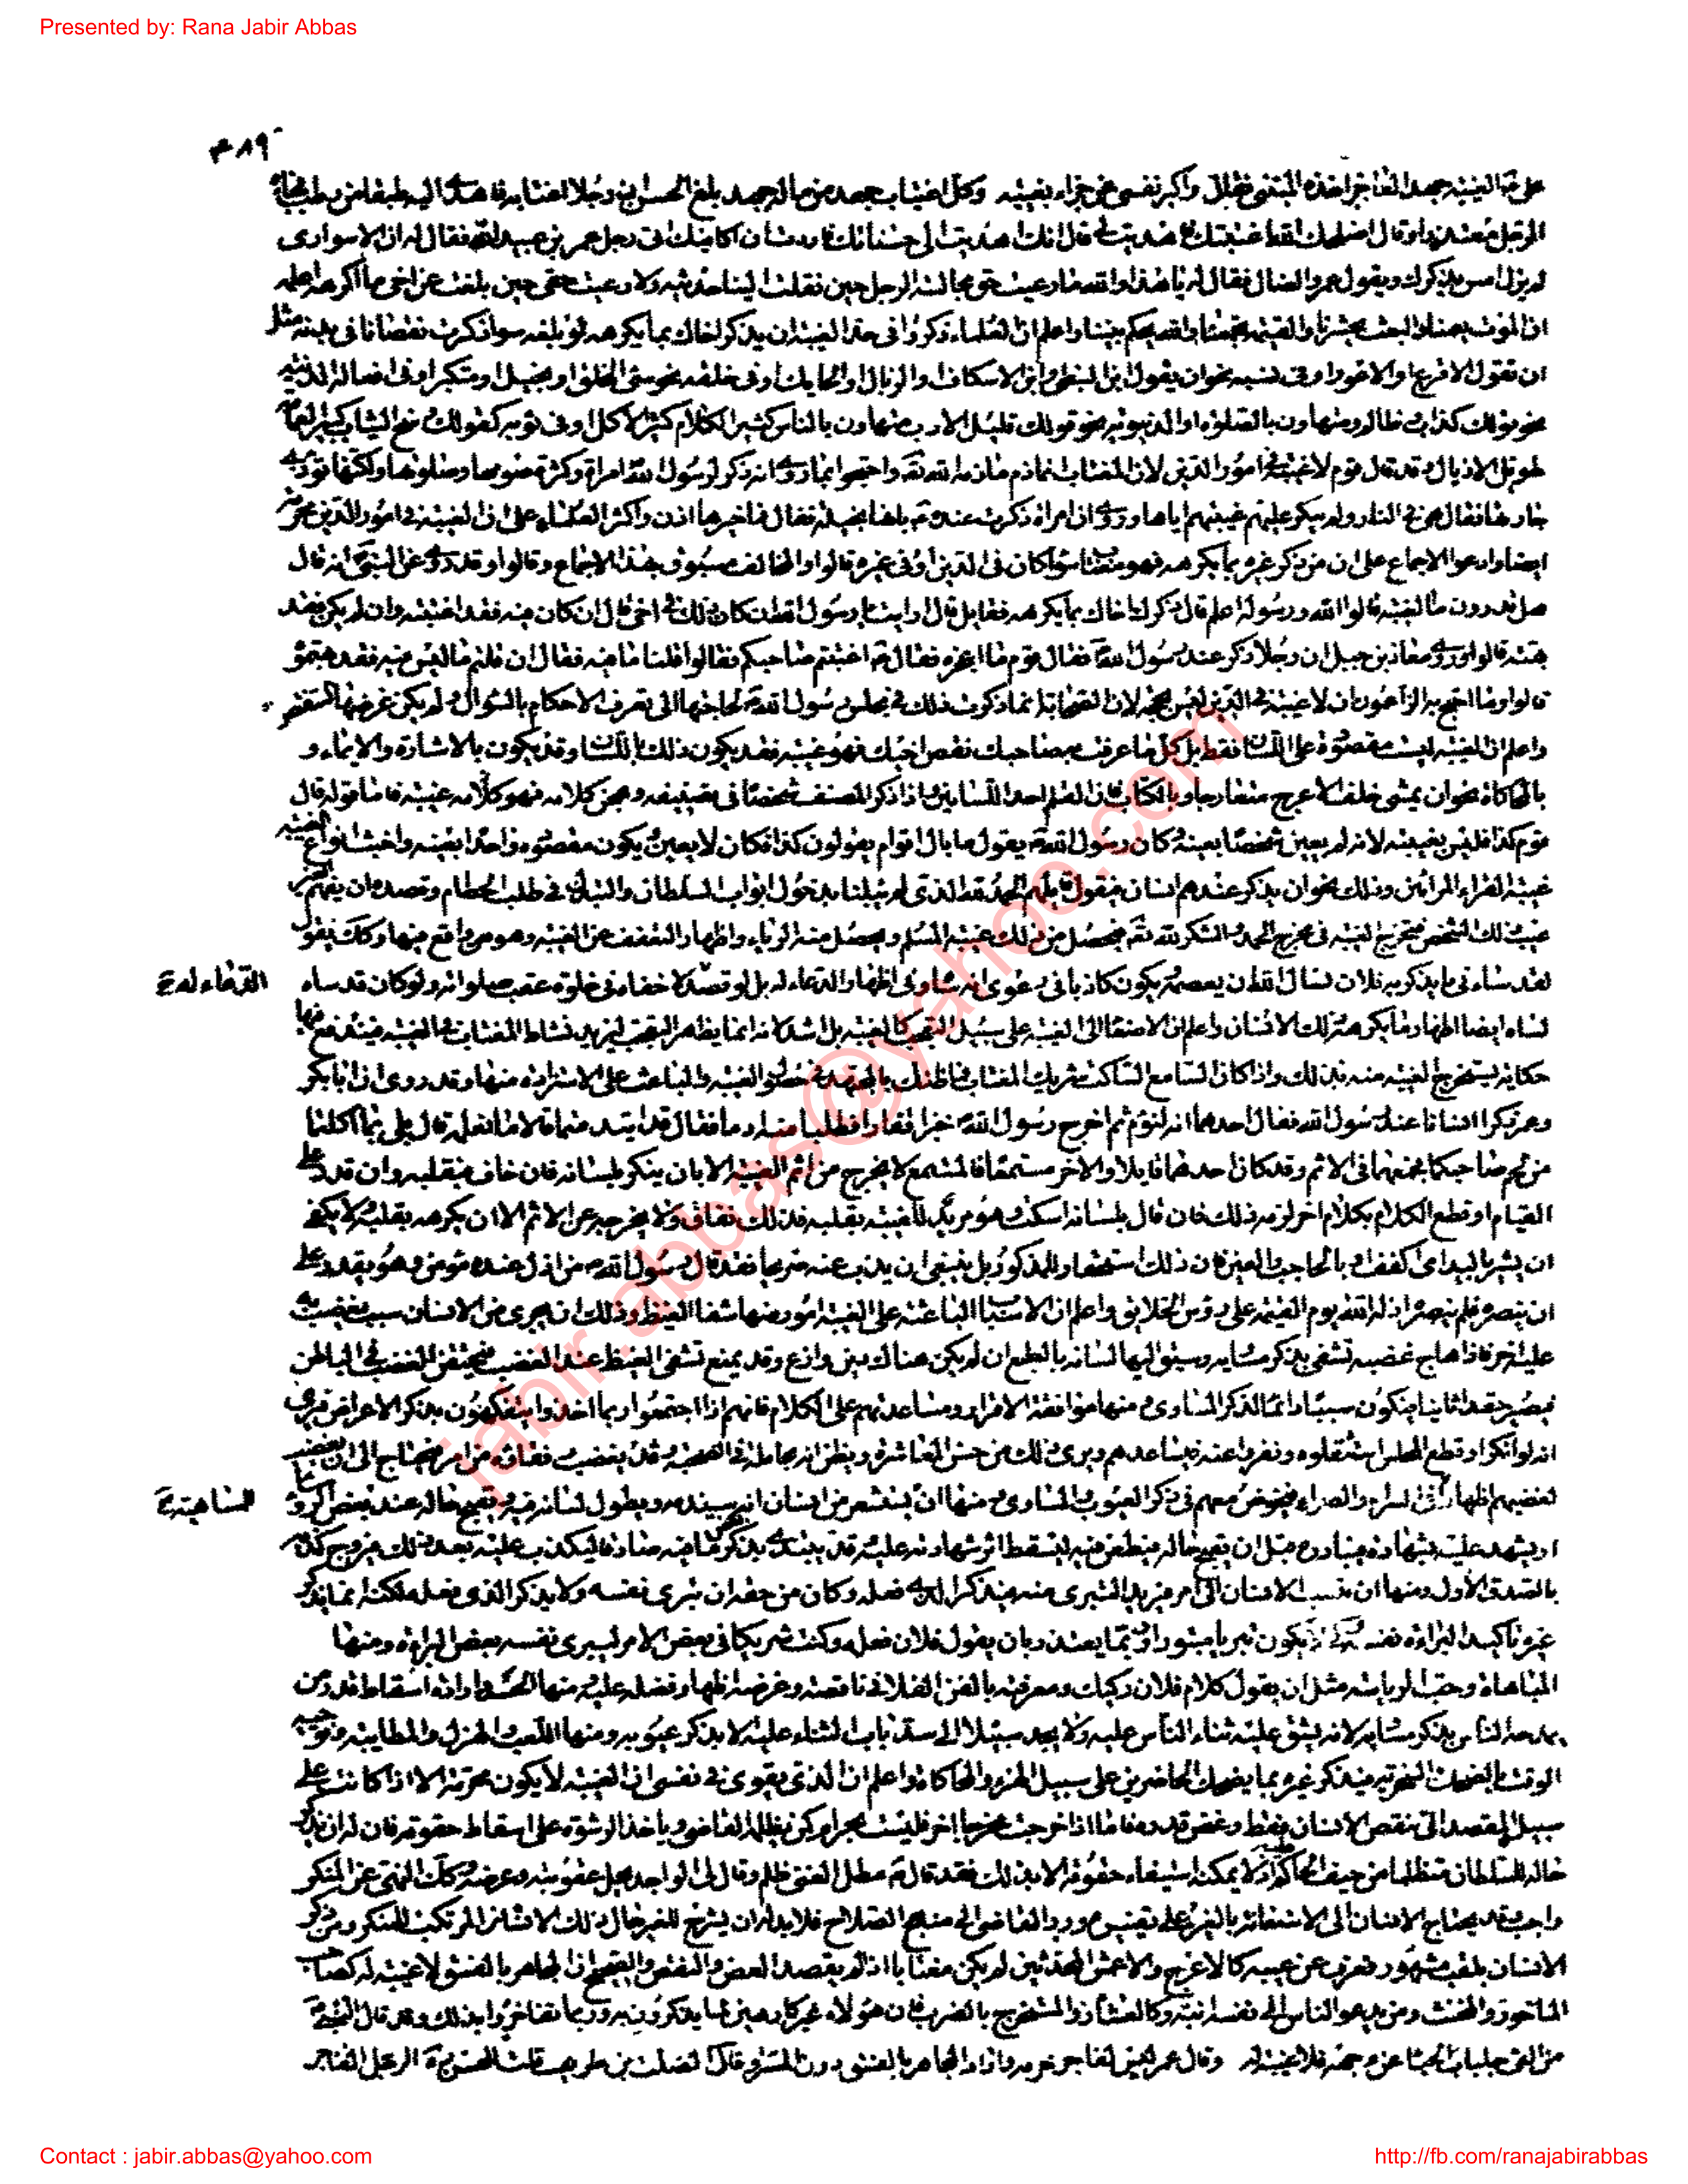 Presented by: Rana Jabir Abbas
٣٨٩
على م الغيبة جهد العاجز اخذه المتنبي فقال واكبر نفسى عن جزاء بغيبة وكل اغتياب جهد من ماله جهد بلغ الحسن ان رجلا اغتابه فاهدى اليه طبقا من رطب فجاءه
الرجل معتذرا وقال اصلحك الله اغتبتك فاهديت لى قال انك اهديت الى حسناتك فاردت ان اكافئك اتى رجل عمرو بن عبيد الله فقال له ان الاسوارى
لم يزل امس يذكرك ويقول عمرو الضال فقال له يا هذا والله ما رعيت حق مجالسة الرجل حين نقلت الينا حديثه ولا رعيت حقى حين بلغت عن اخى ما اكرهه اعلمه
ان الموت يعمنا والبعث يحشرنا والقيمة تجمعنا والله يحكم بيننا واعلم ان العلماء ذكروا فى حد الغيبة ان يذكر اخاك بما يكرهه لو بلغه سواء ذكرت نقصانا فى بدنه مثل
ان تقول الاقرع او الاعور او فى نسبه نحو ان يقول ابن النبطى وابن الاسكاف او الزبال او الحايك او فى خلقه نحو سيئ الخلق او بخيل او متكبر او فى افعاله الدنيئة
نحو قولك كذاب وظالم ومتهاون بالصلوة او الدنيوية نحو قولك قليل الادب متهاون بالناس كثير الكلام كثير الاكل او فى ثوبه كقولك وسخ الثياب كبير العمامة
طويل الاذيال وقد قال قوم لا غيبة فى امور الدين لان المغتاب انما ذم ما ذمه الله تعالى واحتجوا بما روى انه ذكر لرسول الله امراة وكثرة صومها وصلوتها ولكنها تؤذى
جارتها فقال هى فى النار ولم ينكر عليهم غيبتهم اياها وروى ان امراة ذكرت عنده م بانها بخيلة فقال فما خيرها اذن واكثر العلماء على ان الغيبة فى امور الدين محرمة
ايضا وادعوا الاجماع على ان من ذكر غيره بما يكرهه فهو مغتاب سواء كان فى الدين او فى غيره قالوا والمخالف مسبوق بهذا الاجماع وقالوا وقد روى عن النبى انه قال
هل تدرون ما الغيبة قالوا الله ورسوله اعلم قال ذكرك اخاك بما يكرهه فقايل قال ارايت يا رسول الله ان كان ذلك فى اخى قال ان كان فيه فقد اغتبته وان لم يكن فقد
بهته قالوا وروى معاذ بن جبل ان رجلا ذكر عند رسول الله فقال قوم ما اعجزه فقال م اغتبتم صاحبكم فقالوا قلنا ما فيه فقال ان قلتم ما ليس فيه فقد بهتموه
قالوا وما احتج به الزاعمون ان لا غيبة فى الدين ليس بحجة لان الصحابة انما ذكرت ذلك فى مجلس رسول الله لحاجتها الى تعرف الاحكام بالسؤال ولم يكن غرضها التنقص
واعلم ان الغيبة ليست مقصورة على اللسان فقط بل كل ما عرفت به صاحبك نقص اخيك فهو غيبة فقد يكون ذلك باللسان وقد يكون بالاشارة والايماء و
بالمحاكاة نحو ان يمشى خلف الاعرج متعارجا وبالكتاب فان القلم احد اللسانين واذا ذكر المصنف شخصا فى تصنيفه وهجن كلامه فهو كلامه غيبة فاما قوله قال
قوم كذا فليس بغيبة لانه لم يعين شخصا بعينه كان رسول الله يقول ما بال اقوام يقولون كذا فكان لا يعين ويكون مقصوده واحدا بعينه واخبث انواع الغيبة
غيبة القراء المرائين وذلك نحو ان يذكر عندهم انسان فيقول قايلهم الحمد لله الذى لم يبلنا بدخول ابواب السلطان والتبذل فى طلب الحطام وقصده ان يفهم الغير
عيب ذلك الشخص فتخرج الغيبة فى مخرج الحمد والشكر لله تعالى فيحصل من ذلك غيبة المسلم ويحصل منه الرياء واظهار التعفف عن الغيبة وهو واقع فيها وكذلك يقول
لقد ساءنى ما يذكر به فلان نسال الله ان يعصمه ويكون كاذبا فى دعوى انه ساءه وفى اظهار الدعاء له بل لو قصد الاخفاء فى خلوة عقب صلواته ولو كان قد ساءه
الدعاء له ح
لساءه ايضا اظهار ما يكرهه ذلك الانسان واعلم ان الاصغاء الى الغيبة على سبيل التعجب كالغيبة بل اشد لانه انما يظهر التعجب ليزيد نشاط المغتاب فى الغيبة فيندفع فيها
حكاية يستخرج الغيبة منه بذلك واذا كان السامع الساكت شريك المغتاب فما ظنك بالمجتهد فى حصول الغيبة والباعث على الاستزادة منها وقد روى ان ابا بكر
وعمر ذكرا انسانا عند رسول الله فقال احدهما انه لنؤم ثم اخرج رسول الله خبزا قفارا فطلبا منه ادما فقال قد ائتدمتما قالا ما نعلمه قال بلى بما اكلتما
من لحم صاحبكما فجمعهما فى الاثم وقد كان احدهما قايلا والاخر مستمعا فالمستمع لا يخرج من اثم الغيبة الا بان ينكر بلسانه فان خاف فبقلبه وان قدر على
القيام او قطع الكلام بكلام اخر لزمه ذلك فان قال بلسانه اسكت وهو مريد للغيبة بقلبه فذلك نفاق ولا يخرجه عن الاثم الا ان يكرهه بقلبه ولا يكفى
ان يشير باليد اى اكفف او بالحاجب والعين فان ذلك استحقار للمذكور بل ينبغى ان يذب عنه صريحا فقد قال رسول الله من اذل عنده مؤمن وهو يقدر على
ان ينصره فلم ينصره اذله الله يوم القيمة على رؤس الخلايق واعلم ان الاسباب الباعثة على الغيبة امور منها شفاء الغيظ وذلك ان يجرى من الانسان سبب يغضب به
عليه اخر فاذا هاج غضبه تشفى بذكر مساويه وسبق اليها لسانه بالطبع ان لم يكن هناك دين وازع وقد يمنع تشفى الغيظ عند الغضب فيحتقن الغضب فى الباطن
فيصير حقدا ثابتا فيكون سببا دائما لذكر المساوى ومنها موافقة الاقران ومساعدتهم على الكلام فانهم اذا اجتمعوا ربما اخذوا يتفكهون بذكر الاعراض فيرى
انه لو انكر او قطع المجلس استثقلوه ونفروا عنه فيساعدهم ويرى ذلك من حسن المعاشرة ويظن انه مجاملة فى الصحبة وقد يغضب رفقاؤه من امر فيحتاج الى ان يغضب
لغضبهم اظهارا للمساهمة فى السراء والضراء فيخوض معهم فى ذكر العيوب والمساوى ومنها ان يستشعر من انسان انه سيذمه ويطول لسانه فيه ويقبح حاله عند بعض الرؤساء
للمساهمة ح
او يشهد عليه بشهادة فيبادره قبل ان يقبح حاله فيطعن فيه ليسقط اثر شهادته عليه وقد يبتدى بذكر ما فيه صادقا ليكذب عليه بعد ذلك فيروج كذبه
بالصدق الاول ومنها ان ينسب الانسان الى امر فيريد التبرى منه فيذكر الذى فعله وكان من حقه ان يبرى نفسه ولا يذكر الذى فعله لكنه انما يذكر
غيره تاكيدا لبراءة نفسه يكون تبريا مبتورا وربما يعتذر بان يقول فلان فعله وكنت شريكا فى بعض الامر ليبرى نفسه بعض البراءة ومنها
المباهاة وحب الرياسة مثل ان يقول كلام فلان ركيك ومعرفته بالفن الفلانى ناقصة وغرضه اظهار فضله عليه ومنها الحسد وارادة اسقاط قدر من
يمدحه الناس بذكر مساويه لانه يشق عليه ثناء الناس عليه ولا يجد سبيلا الى سد باب الثناء عليه الا بذكر عيوبه ومنها اللعب والهزل والمطايبة وتزجية
الوقت بالضحك والسخرية فيذكر غيره بما يضحك الحاضرين على سبيل الهزء والمحاكاة واعلم ان الذى يقوى فى نفسى ان الغيبة لا يكون محرمة الا اذا كانت على
سبيل القصد الى تنقص الانسان فقط وغض قدره فاما اذا خرجت مخرجا اخر فليست بحرام كمن يظلمه القاضى وياخذ الرشوة على اسقاط حقوقه فان له ان يذكر
حاله للسلطان متظلما من حيف الحاكم اذ لا يمكنه استيفاء حقوقه الا بذلك فقد قال م مطل الغنى ظلم وقال لى الواجد يحل عقوبته وعرضه وكذلك النهى عن المنكر
واجب وقد يحتاج الانسان الى الاستعانة بالغير على تغييره ورد القاضى الى منهج الصلاح فلا بد له ان يشرح للغير حال ذلك الانسان المرتكب للمنكر ومن ذكر
الانسان بلقب مشهور فعرف عن عيبه كالاعرج والاعمش المحدثين لم يكن مغتابا اذا لم يقصد الغض والنقص والصحيح ان المجاهر بالفسق لا غيبة له كصاحب
الماخور والمخنث ومن يدعو الناس الى نفسه ابنة وكالعشار والمستخرج بالضرب فان هؤلاء غير كارهين لما يذكرون به وربما تفاخروا بذلك وقد قال النبى
من القى جلباب الحياء عن وجهه فلا غيبة له وقال عمر ليس لفاجر حرمة واراد المجاهر بالفسق دون المستتر وقال الصلت بن طريف قلت للحسن ره الرجل الفاجر
jabir.abbas@yahoo.com
Contact : jabir.abbas@yahoo.com
http://fb.com/ranajabirabbas